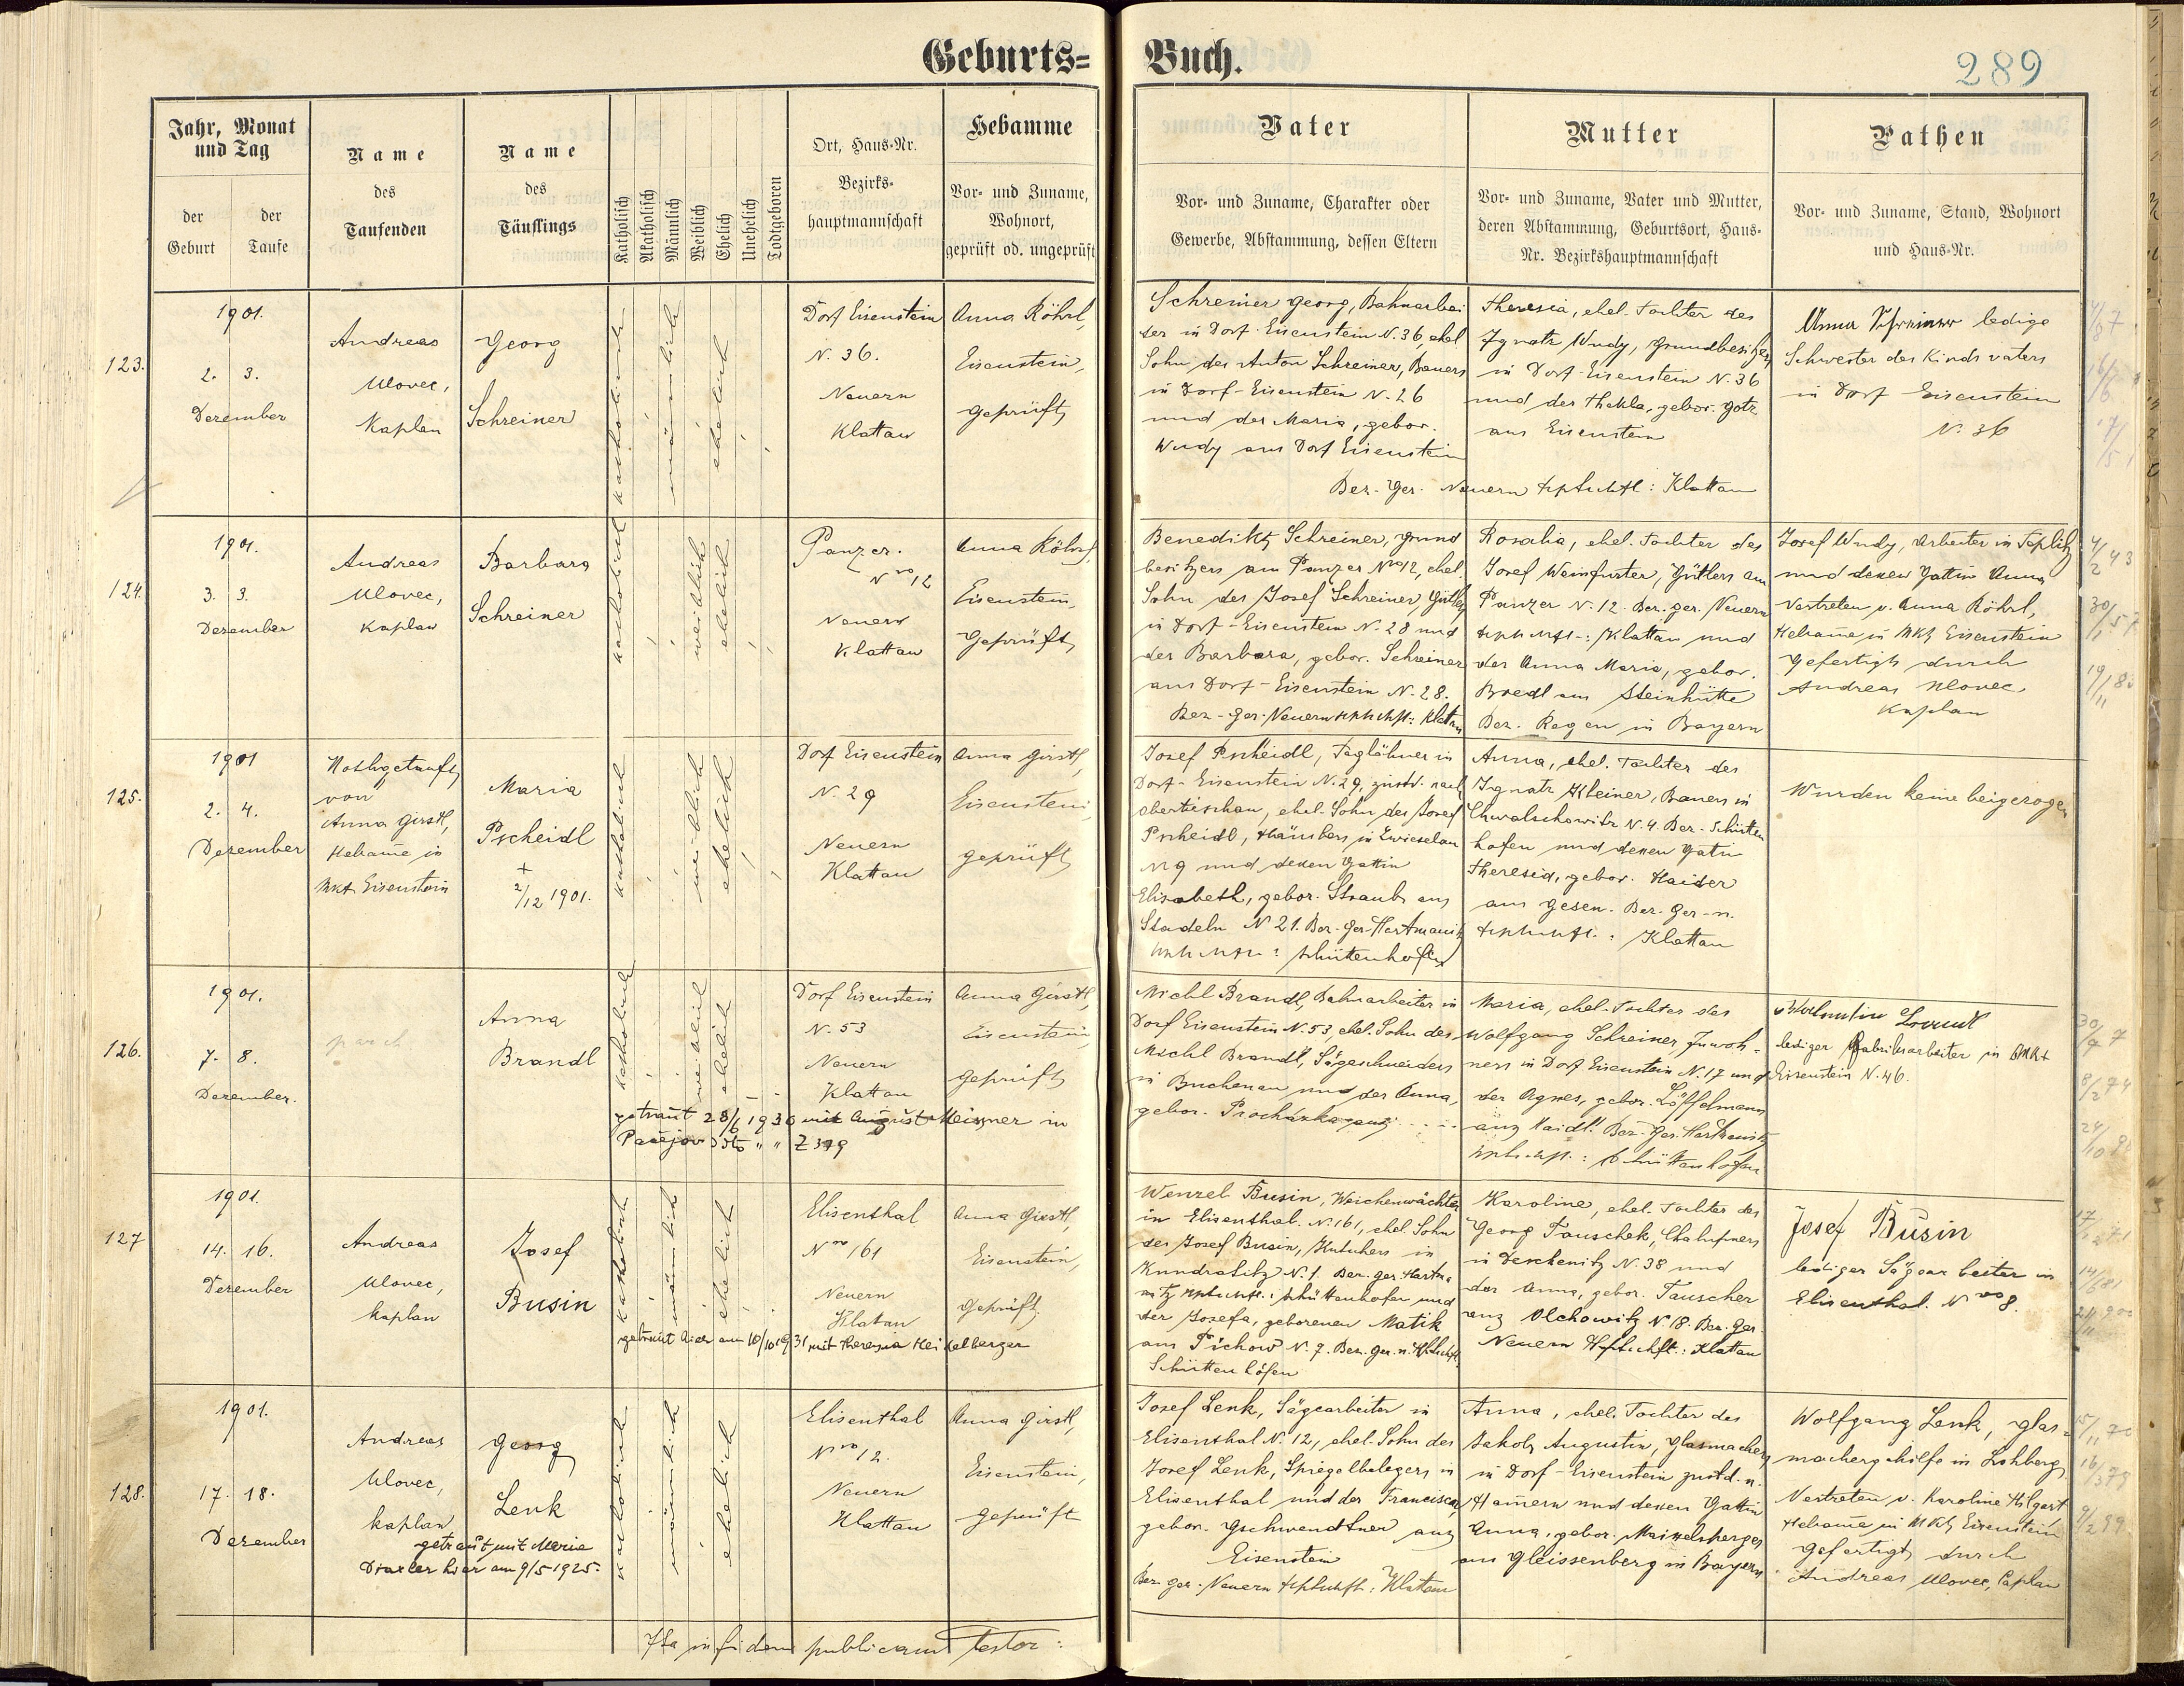 Geburts= Buch.
289
Jahr, Monat und Tag
der Geburt
der Taufe
Name des Taufenden
Name des Täuflings
Katholisch
Akatholisch
Männlich
Weiblich
Ehelich
Unehelich
Todtgeboren
Ort, Haus-Nr.
Bezirks-
hauptmannschaft
Hebamme
Vor- und Zuname,
Wohnort,
geprüft od. ungeprüft
Vater
Vor- und Zuname, Charakter oder
Gewerbe, Abstammung, dessen Eltern
Mutter
Vor- und Zuname, Vater und Mutter,
deren Abstammung, Geburtsort, Haus-
Nr. Bezirkshauptmannschaft
Pathen
Vor- und Zuname, Stand, Wohnort
und Haus-Nr.
123.
1901.
2. 3.
Dezember
Andreas
Ulovec,
Kaplan
Georg
Schreiner
katholisch
männlich
ehelich
Dorf Eisenstein
N. 36.
Neuern
Klattau
Anna Röhrl,
Eisenstein,
geprüft
Schreiner Georg, Bahnarbei
ter in Dorf-Eisenstein N. 36, ehel.
Sohn des Anton Schreiner, Bauers
in Dorf-Eisenstein N. 26
und der Maria, gebor.
Wudy aus Dorf Eisenstein
Bez. Ger. Neuern Klattau
Theresia, ehel. Tochter des
Ignatz Wudy, Grundbesitzers
in Dorf-Eisenstein N. 36
und der Thekla, gebor. Götz
aus Eisenstein
Anna Schreiner ledige
Schwester des Kindsvaters
in Dorf Eisenstein
N. 36
124.
1901.
3. 3.
Dezember
Andreas
Ulovec,
Kaplan
Barbara
Schreiner
katholisch
weiblich
ehelich
Panzer.
Nro 12
Neuern
Klattau
Anna Röhrl,
Eisenstein,
Geprüft
Benedikt Schreiner, Grund
besitzers am Panzer Nro 12, ehel.
Sohn des Josef Schreiner Gütlers
in Dorf-Eisenstein N. 28 und
der Barbara, gebor. Schreiner
aus Dorf-Eisenstein N. 28.
Bez-Ger. Neuern Klattau
Rosalia, ehel. Tochter des
Josef Weinfurter, Gütlers am
Panzer N. 12. Bez. ger. Neuern
Klattau und
der Anna Maria, gebor.
Bredl aus Steinhütte
Bez. Regen in Bayern
Josef Wudy, Arbeiter in Teplitz
und dessen Gattin Anna
Vertreten v. Anna Röhrl,
Hebame in Mkt Eisenstein
Gefertigt durch
Andreas Ulovec,
Kaplan
125.
1901
2. 4.
Dezember
Nothgetauft
von
Anna Girstl,
Hebame in
Mkt Eisenstein
Maria
Pscheidl
+
2/12 1901.
katholisch
weiblich
ehelich
Dorf Eisenstein
N. 29
Neuern
Klattau
Anna Girstl,
Eisenstein,
geprüft
Josef Pscheidl, Taglöhner in
Dorf-Eisenstein N. 29, zustd. nach
ehel. Sohn des Josef
Pscheidl, Häuslers in Zwieselau
N 9 und dessen Gattin
Elisabeth, gebor. Straub aus
Stadeln N 21. Bez. Ger. Hartmanitz
Schüttenhofen
Anna, ehel. Tochter des
Ignatz Kleiner, Bauers in
Chwalschowitz N. 4. Bez. Schütten
hofen und dessen Gatin
Theresia, gebor. Haider
aus Gesen. Bez. Ger. n.
Klattau
Wurden keine beigezogen
126.
1901.
7. 8.
Dezember.
Anna
Brandl
katholisch
weiblich
ehelich
Dorf Eisenstein
N. 53
Neuern
Klattau
Anna Girstl,
Eisenstein,
geprüft
getraut 28/6 1930 mit August Meisner in
Pačejov Z 349
Michl Brandl, Bahnarbeiter in
Dorf Eisenstein N. 53, ehel. Sohn des
Michl Brandl, Sägeschneiders
in Buchenau und der Anna,
gebor. Prochazka
Maria, ehel. Tochter des
Wolfgang Schreiner, Inwoh-
ners in Dorf Eisenstein N. 17 und
der Agnes, gebor. Löffelmann
aus Haidl. Bez. Ger. Hartmanitz
Schüttenhofen
lediger Fabriksarbeiter in Mkt
Eisenstein N. 46.
127
1901.
14. 16.
Dezember
Andreas
Ulovec,
Kaplan
Josef
Busin
katholisch
männlich
ehelich
Elisenthal
Nro 161
Neuern
Klatau
Anna Girstl,
Eisenstein,
Geprüft
getraut hier am 10/10 1931 mit Theresia Heikelberger
Wenzel Busin, Weichenwächter
in Elisenthal. N. 161, ehel. Sohn
des Josef Busin, Kutschers in
Kundratitz N. 1. Bez. ger. Hartma
nitz Schüttenhofen und
der Josefa, geborenen Matik
aus Pichow N. 7. Bez. ger. n.
Schüttenhofen
Karoline, ehel. Tochter des
Georg Tauschek, Chalupners
in Deschenitz N. 38 und
der Anna, gebor. Tauscher
aus Olchowitz N 18. Bez. Ger.
Neuern Klattau
Josef Busin
lediger Sägearbeiter in
Elisenthal. Nro 8.
128.
1901.
17. 18.
Dezember
Andreas
Ulovec,
Kaplan
Georg
Lenk
getraut mit Maria
Draxler hier am 9/5 1925.
katholisch
männlich
ehelich
Elisenthal
Nro 12.
Neuern
Klattau
Anna Girstl,
Eisenstein,
geprüft
Josef Lenk, Sägearbeiter in
Elisenthal N. 12, ehel. Sohn des
Josef Lenk, Spiegelbelegers in
Elisenthal und der Francisca,
gebor. Gschwendtner aus
Eisenstein
Bez. ger. Neuern Klattau
Anna, ehel. Tochter des
Jakob Augustin, Glasmachers
in Dorf-Eisenstein zustd. n.
Hamern und dessen Gattin
Anna, gebor. Maixelsperger
aus Gleissenberg in Bayern
Wolfgang Lenk, Glas-
machergehilfe in Lohberg
Vertreten v. Karoline Hilgart
Hebame in Mkt Eisenstein
Gefertigt durch
Andreas Ulovec, Caplan
Ita in fidem publicam testor: